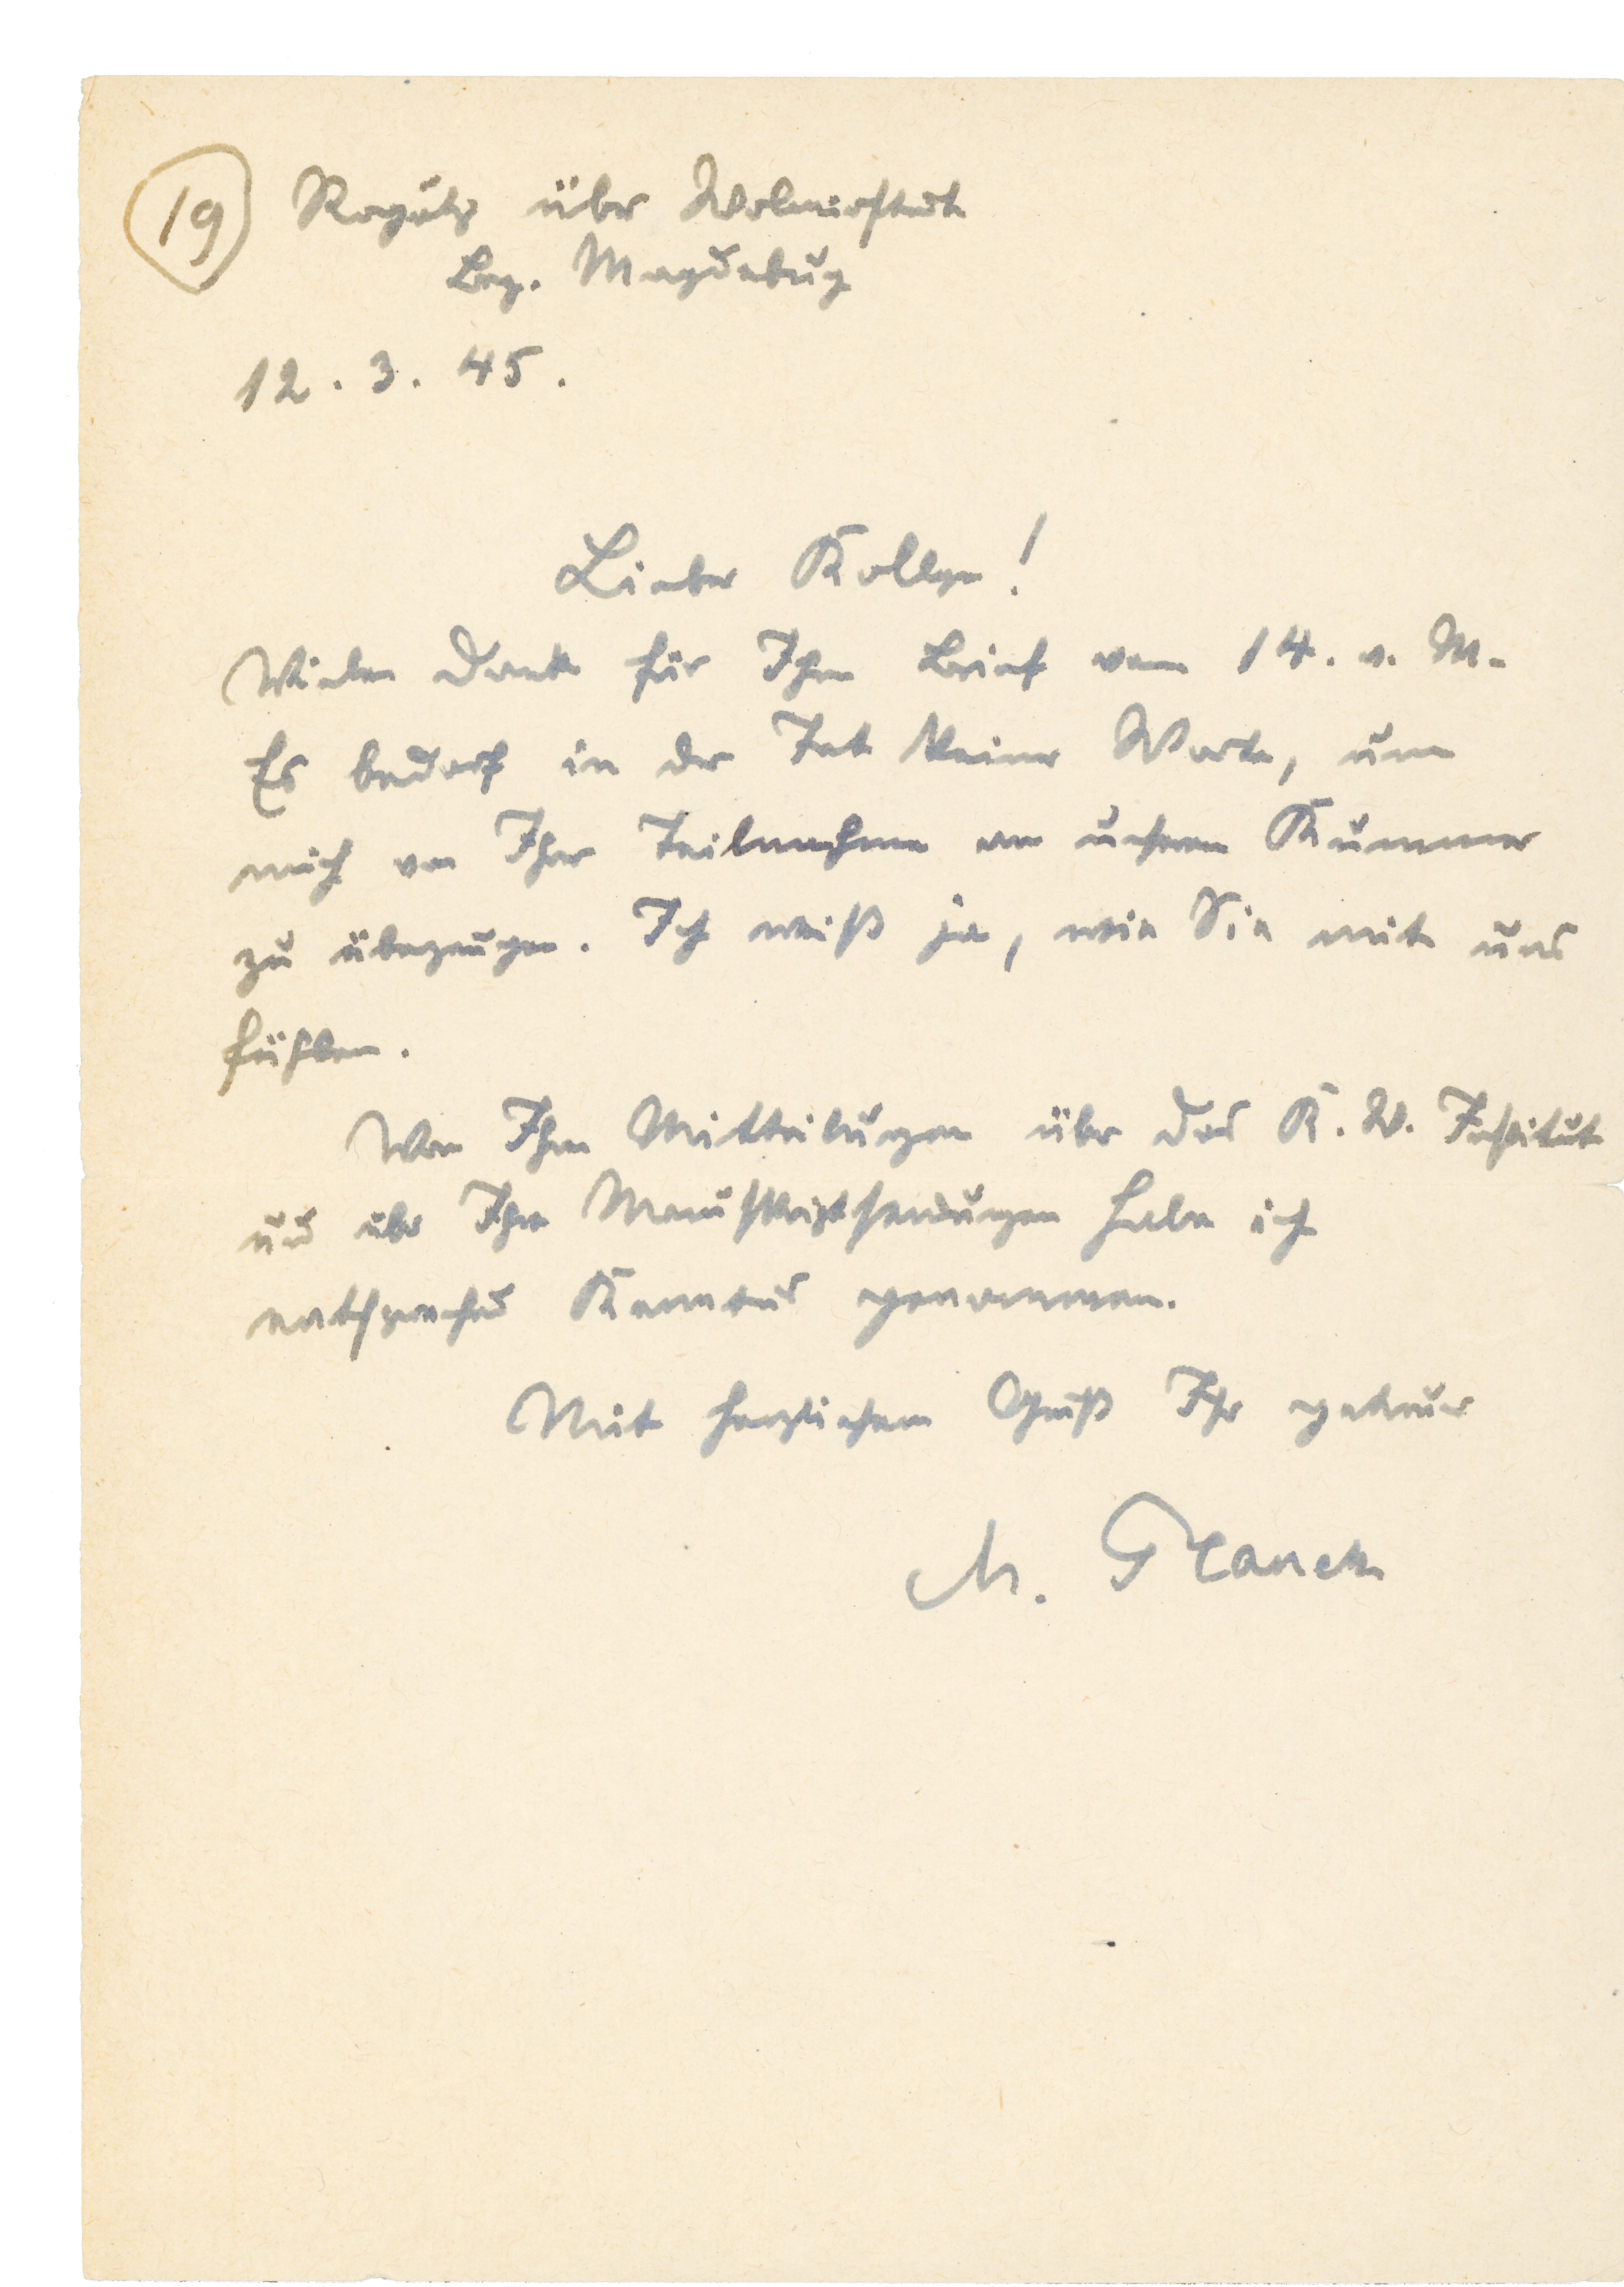 19 Rogätz über Wolmirstedt
Bez. Magdeburg
12. 3. 45.
Lieber Kollege!
Vielen Dank für Ihren Brief vom 14. v. M.
Es bedarf in der Tat keiner Worte, um
mich von Ihrer Teilnahme an unserem Kummer
zu überzeugen. Ich weiß ja, wie Sie mit uns
fühlen.
Von Ihren Mitteilungen über das K. W. Institut
und über Ihre Manuskriptsendungen habe ich
entsprechend Kenntnis genommen.
Mit herzlichem Gruß Ihr getreuer
M. Planck